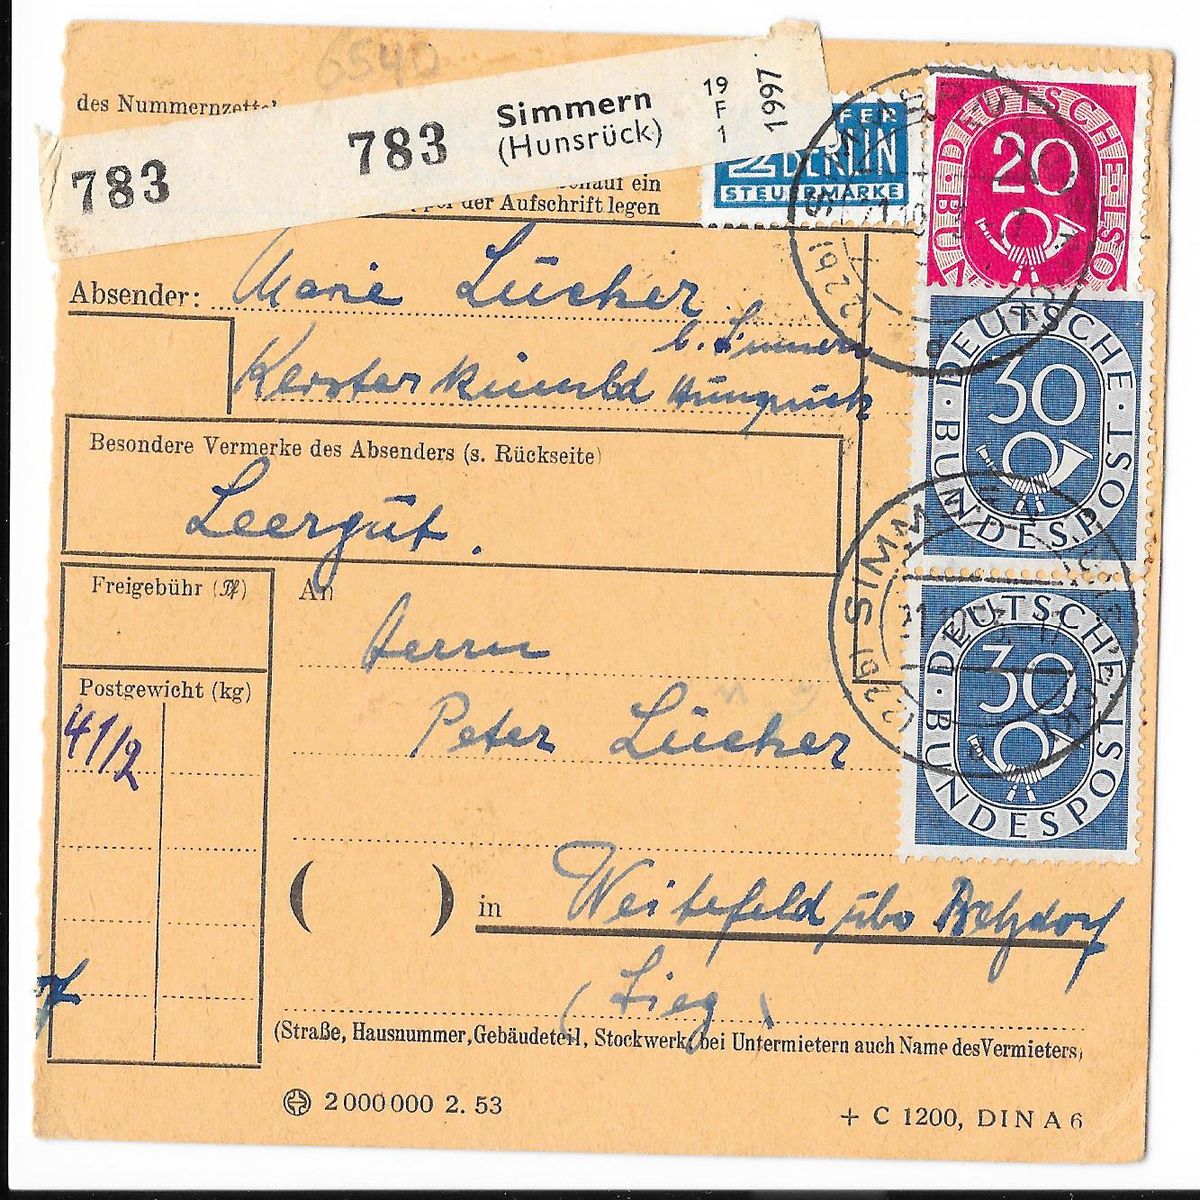 6540
des Nummernzettel
783
783
Simmern
(Hunsrück)
19
F
1
1997
auf ein
der Aufschrift legen
2 BERLIN
STEUERMARKE
DEUTSCHE BUNDESPOST
20
Absender: Marie Lücher
b. Simmern
Hunsrück
Besondere Vermerke des Absenders (s. Rückseite)
Leergut.
DEUTSCHE BUNDESPOST
30
(22b) SIMMERN
Freigebühr (Pf)
An
Herrn
Postgewicht (kg)
4 1/2
Peter Lücher
DEUTSCHE BUNDESPOST
30
( ) in Weitefeld über Betzdorf
(Sieg)
(Straße, Hausnummer, Gebäudeteil, Stockwerk; bei Untermietern auch Name des Vermieters)
2 000 000 2. 53
+ C 1200, DIN A 6